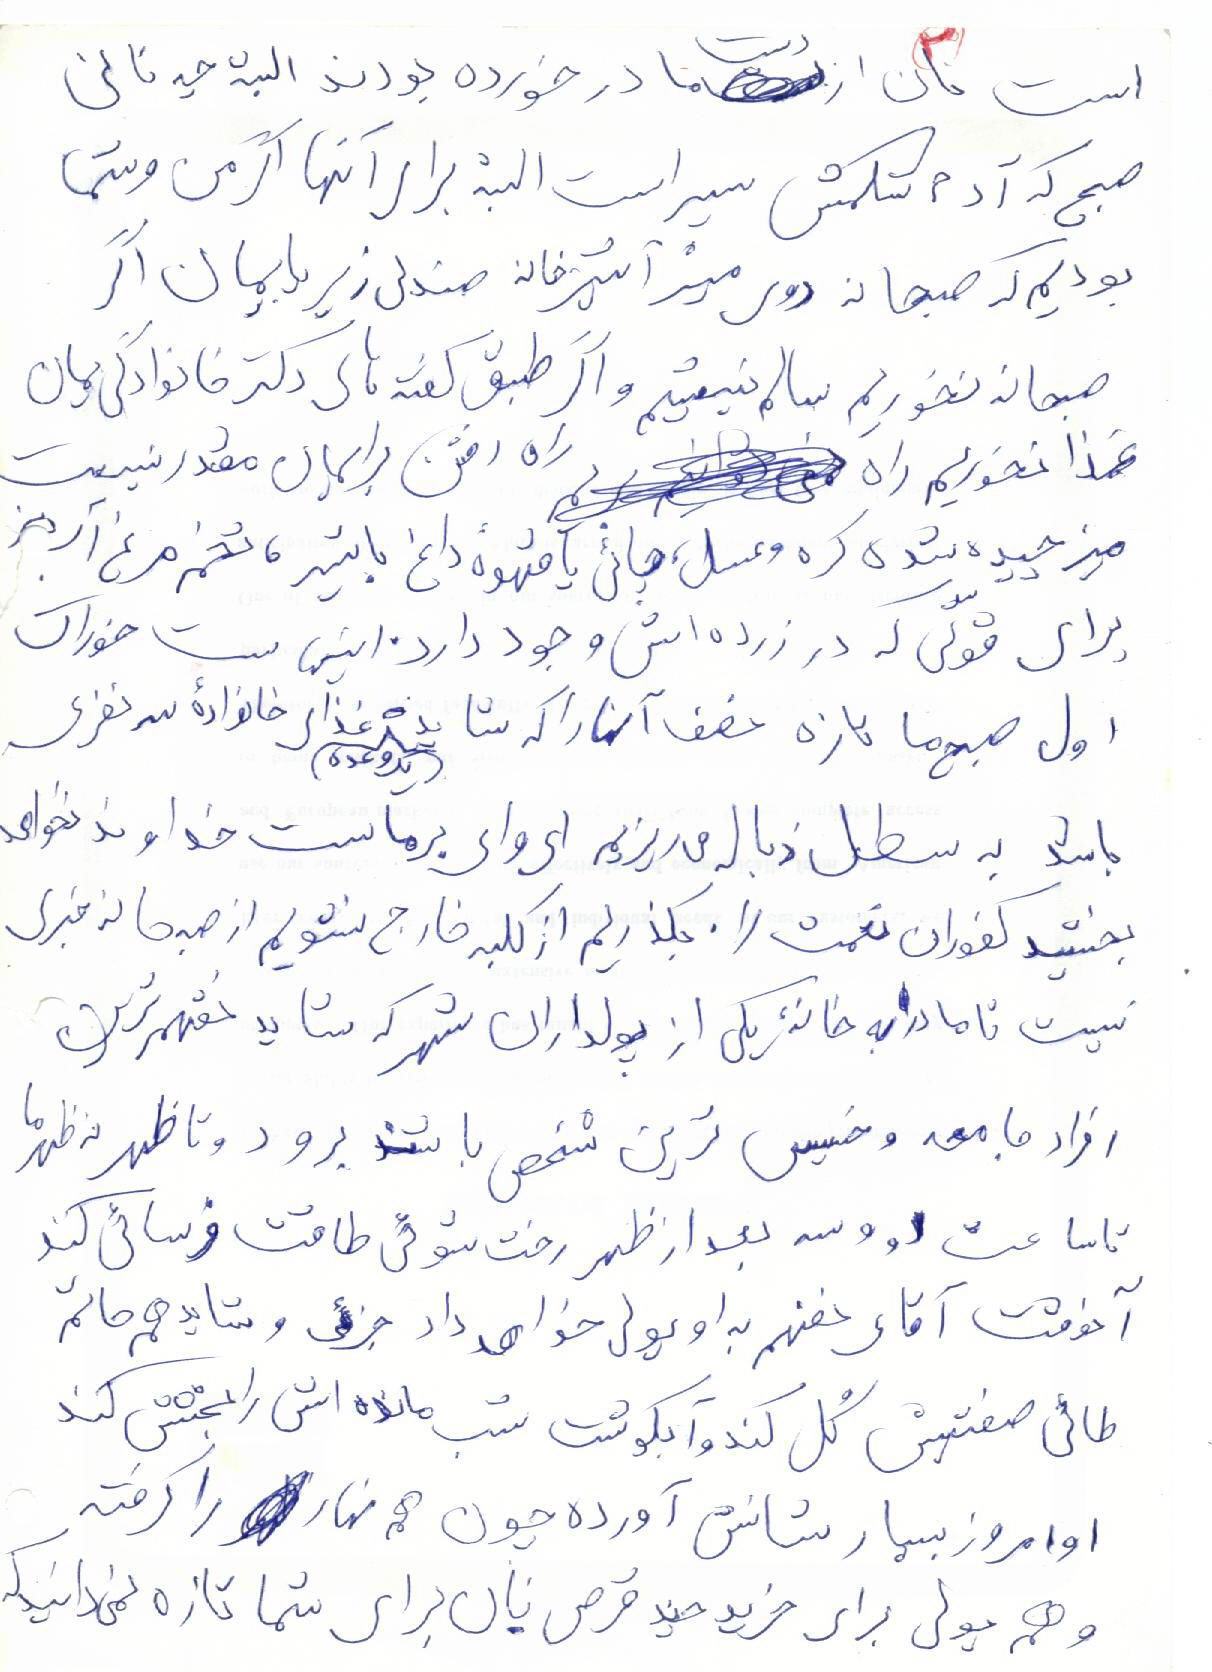 ۲
است نان از دست ما در خورده بودند البته چه نانی
صبح که آدم شکمش سیر است البته برای آنها اگر من و شما
بودیم که صبحانه روی میز آشپزخانه صندلی زیر پایمان اگر
صبحانه نخوریم سالم نیستیم و اگر طبق گفته های دکتر خانوادگی یمان
غذا نخوریم راه راه رفتن برایمان مقدر نیست
میز چیده شده کره و عسل، چائی یا قهوهٔ داغ با شیر، تخم مرغ آب پز
برای قوّتی که در زرده اش وجود دارد. این ست خوراک
اول صبح ما تازه نصف آنها را که شاید غذای خانوادهٔ سه نفری
(یکوعده)
باشد به سطل زباله می ریزیم ای وای بر ماست خداوند نخواهد
بخشید کفوران نعمت را. بگذریم از کلبه خارج شویم از صبحانه خبری
نیست تا مادر به خانهٔ یکی از پولداران شهر که شاید نفهم ترین
افراد جامعه و خسیس ترین شخص باشد برود و تا ظهر نه ظهر ما
تا ساعت دو و سه بعد از ظهر رخت شوئی طاقت فرسائی کند
آنوقت آقای نفهم به او پولی خواهد داد جزئی و شاید هم حاتم
طائی صفتیش گل کند و آبگوشت شب مانده اش را بخشش کند
او امروز بسیار شانس آورده چون هم نهار را گرفته
و هم پولی برای خرید چند قرص نان برای شما تازه نمی دانید که